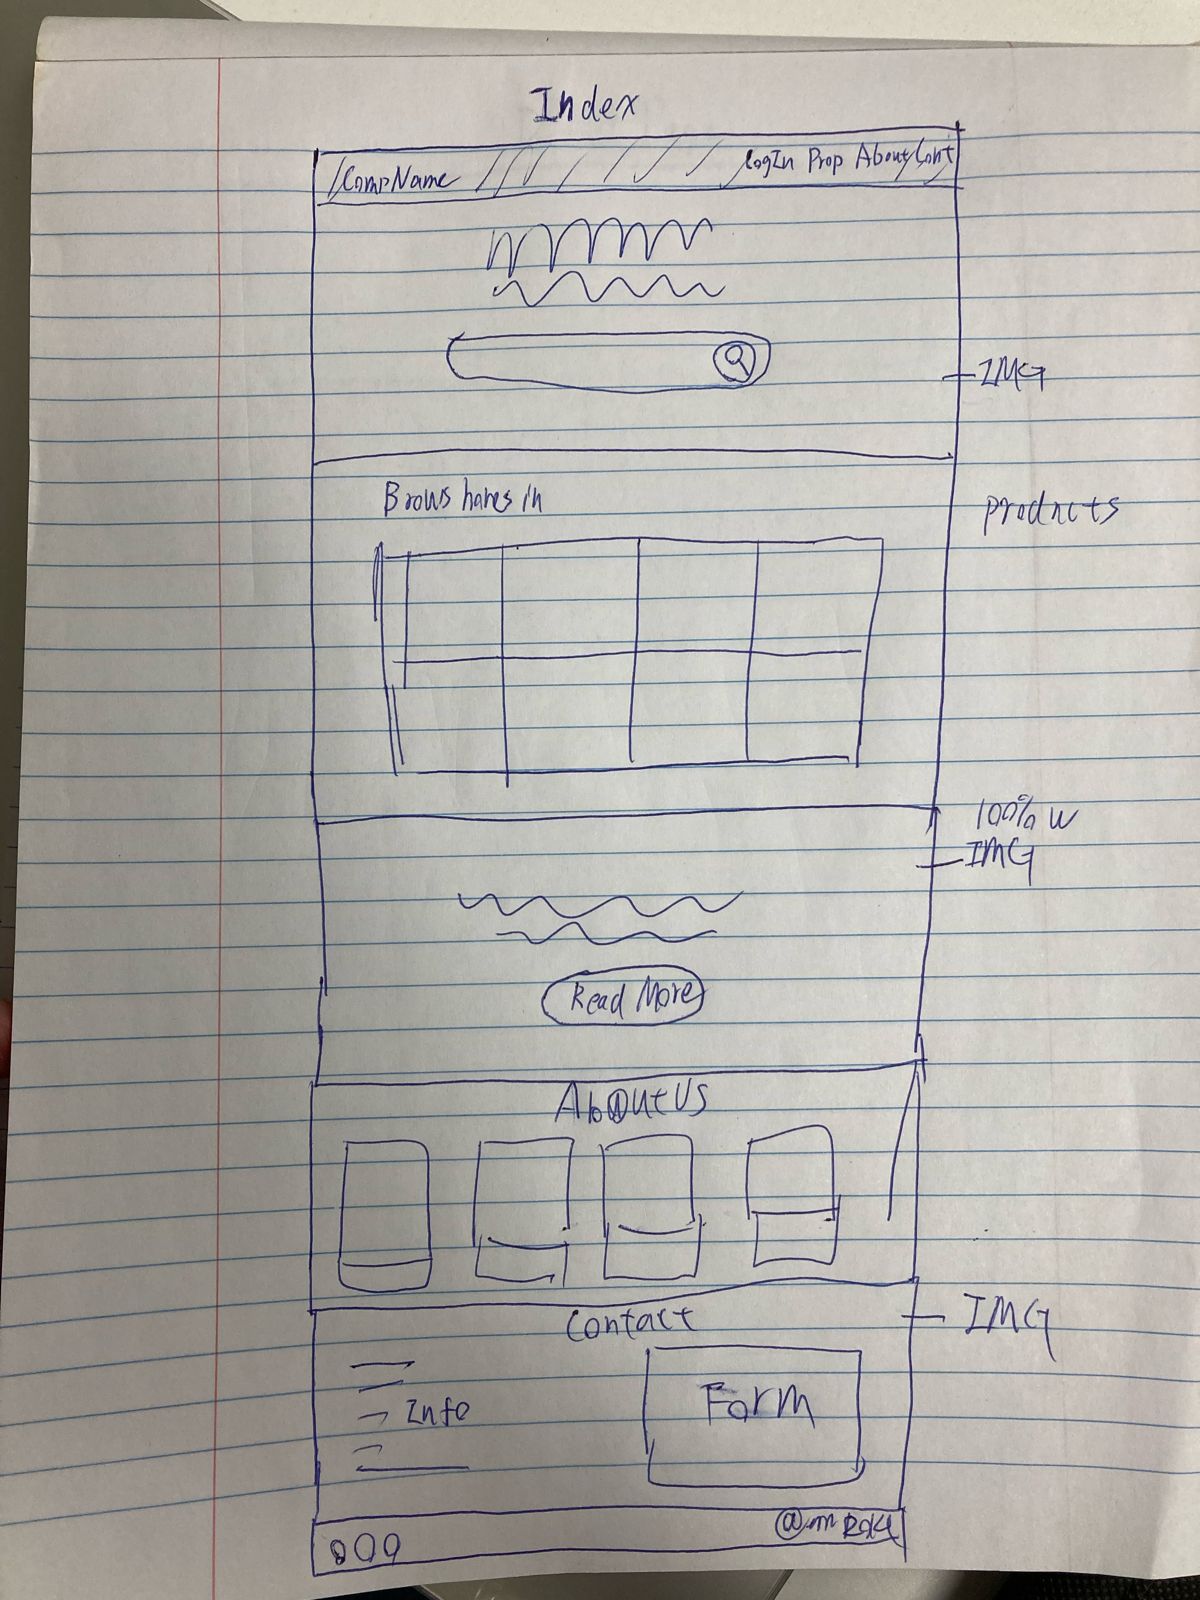 Index
CompName LogIn Prop About Cont
IMG
Brows homes in
products
100% W
IMG
Read More
About Us
Contact
IMG
Info
Form